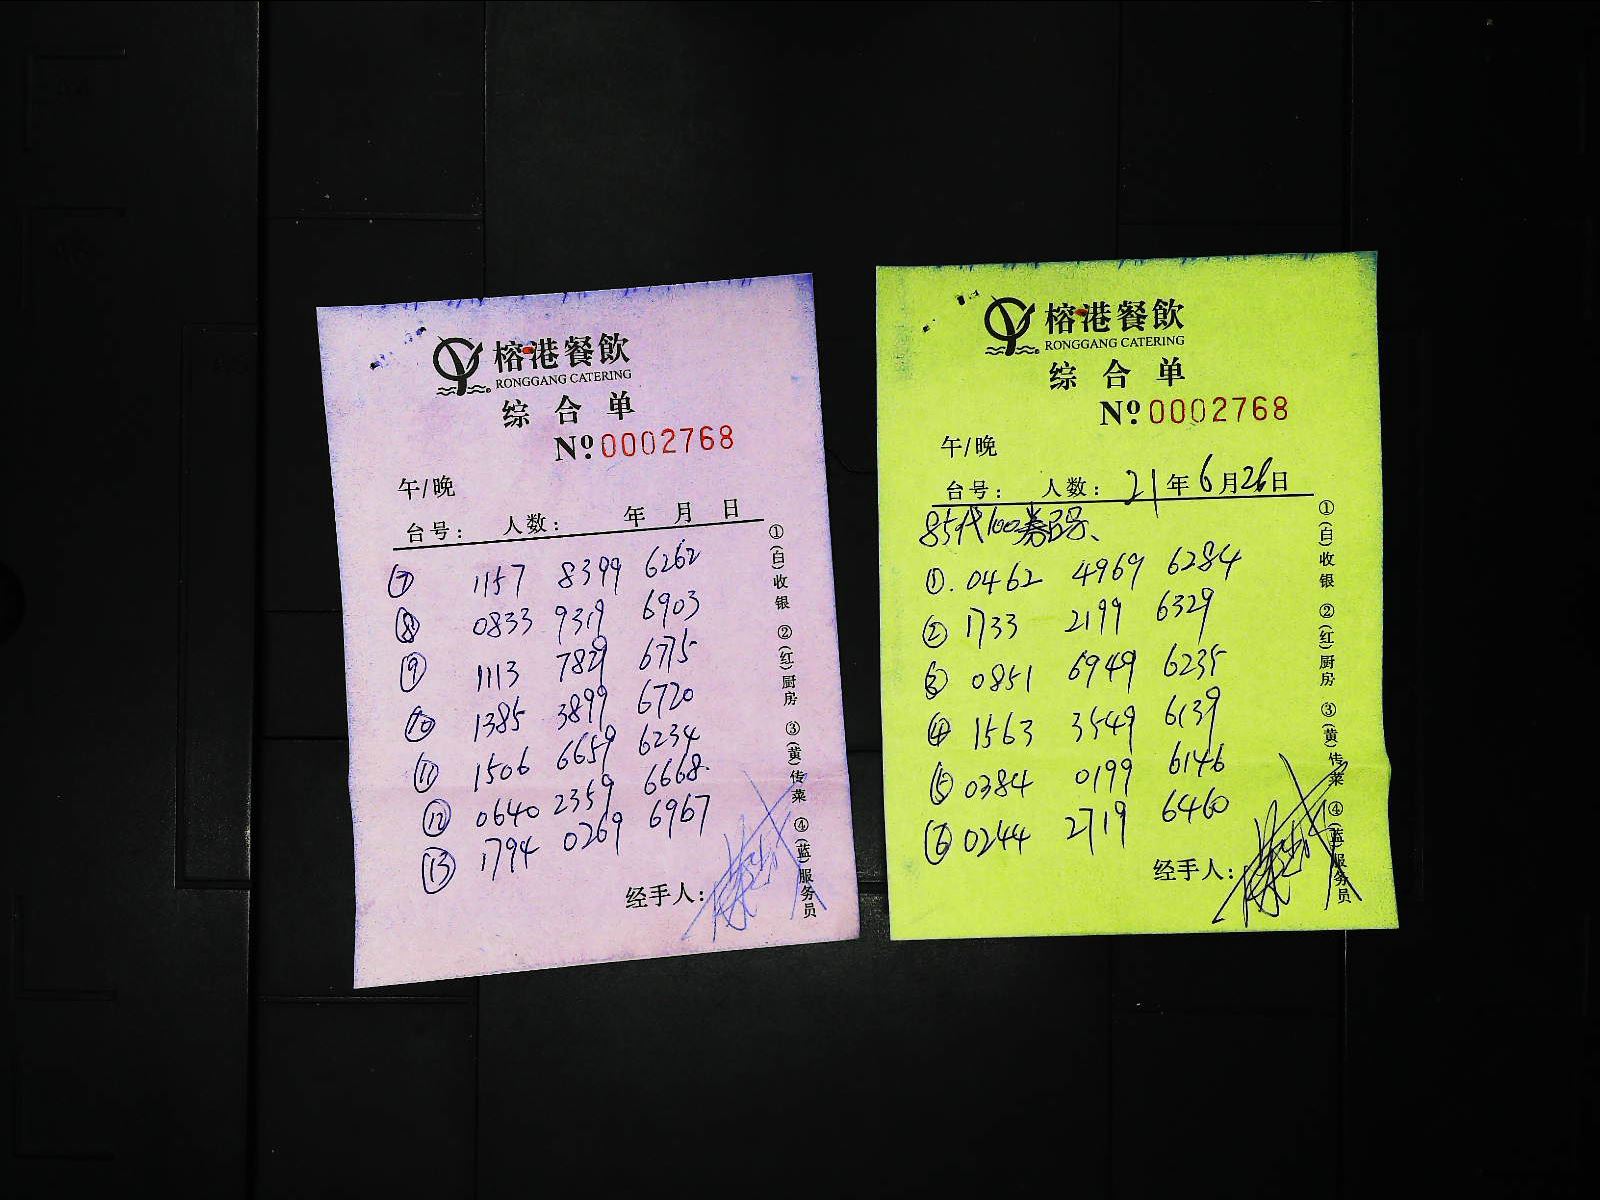 榕港餐飲
RONGGANG CATERING
综合单
№0002768
午/晚
台号: 人数: 年 月 日
⑦ 1157 8399 6262
⑧ 0833 9319 6903
⑨ 1113 7829 6715
⑩ 1385 3899 6720
⑪ 1506 6659 6234
⑫ 0640 2359 6668
⑬ 1794 0269 6967
经手人:
①(白)收银 ②(红)厨房 ③(黄)传菜 ④(蓝)服务员
榕港餐飲
RONGGANG CATERING
综合单
№0002768
午/晚
台号: 人数: 21年6月26日
85代100券码、
①. 0462 4969 6284
② 1733 2199 6329
③ 0851 6949 6235
④ 1563 3549 6139
⑤ 0384 0199 6146
⑥ 0244 2719 6460
经手人:
①(白)收银 ②(红)厨房 ③(黄)传菜 ④(蓝)服务员